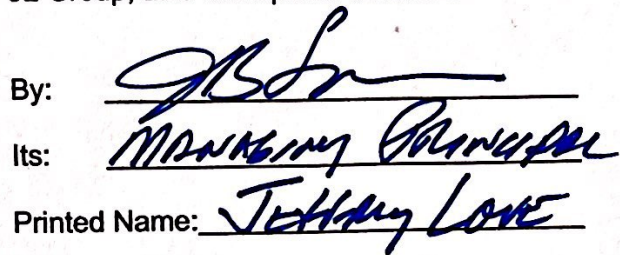 Group,
By:
Its: MANAGING PRINCIPAL
Printed Name: Jeffrey Love